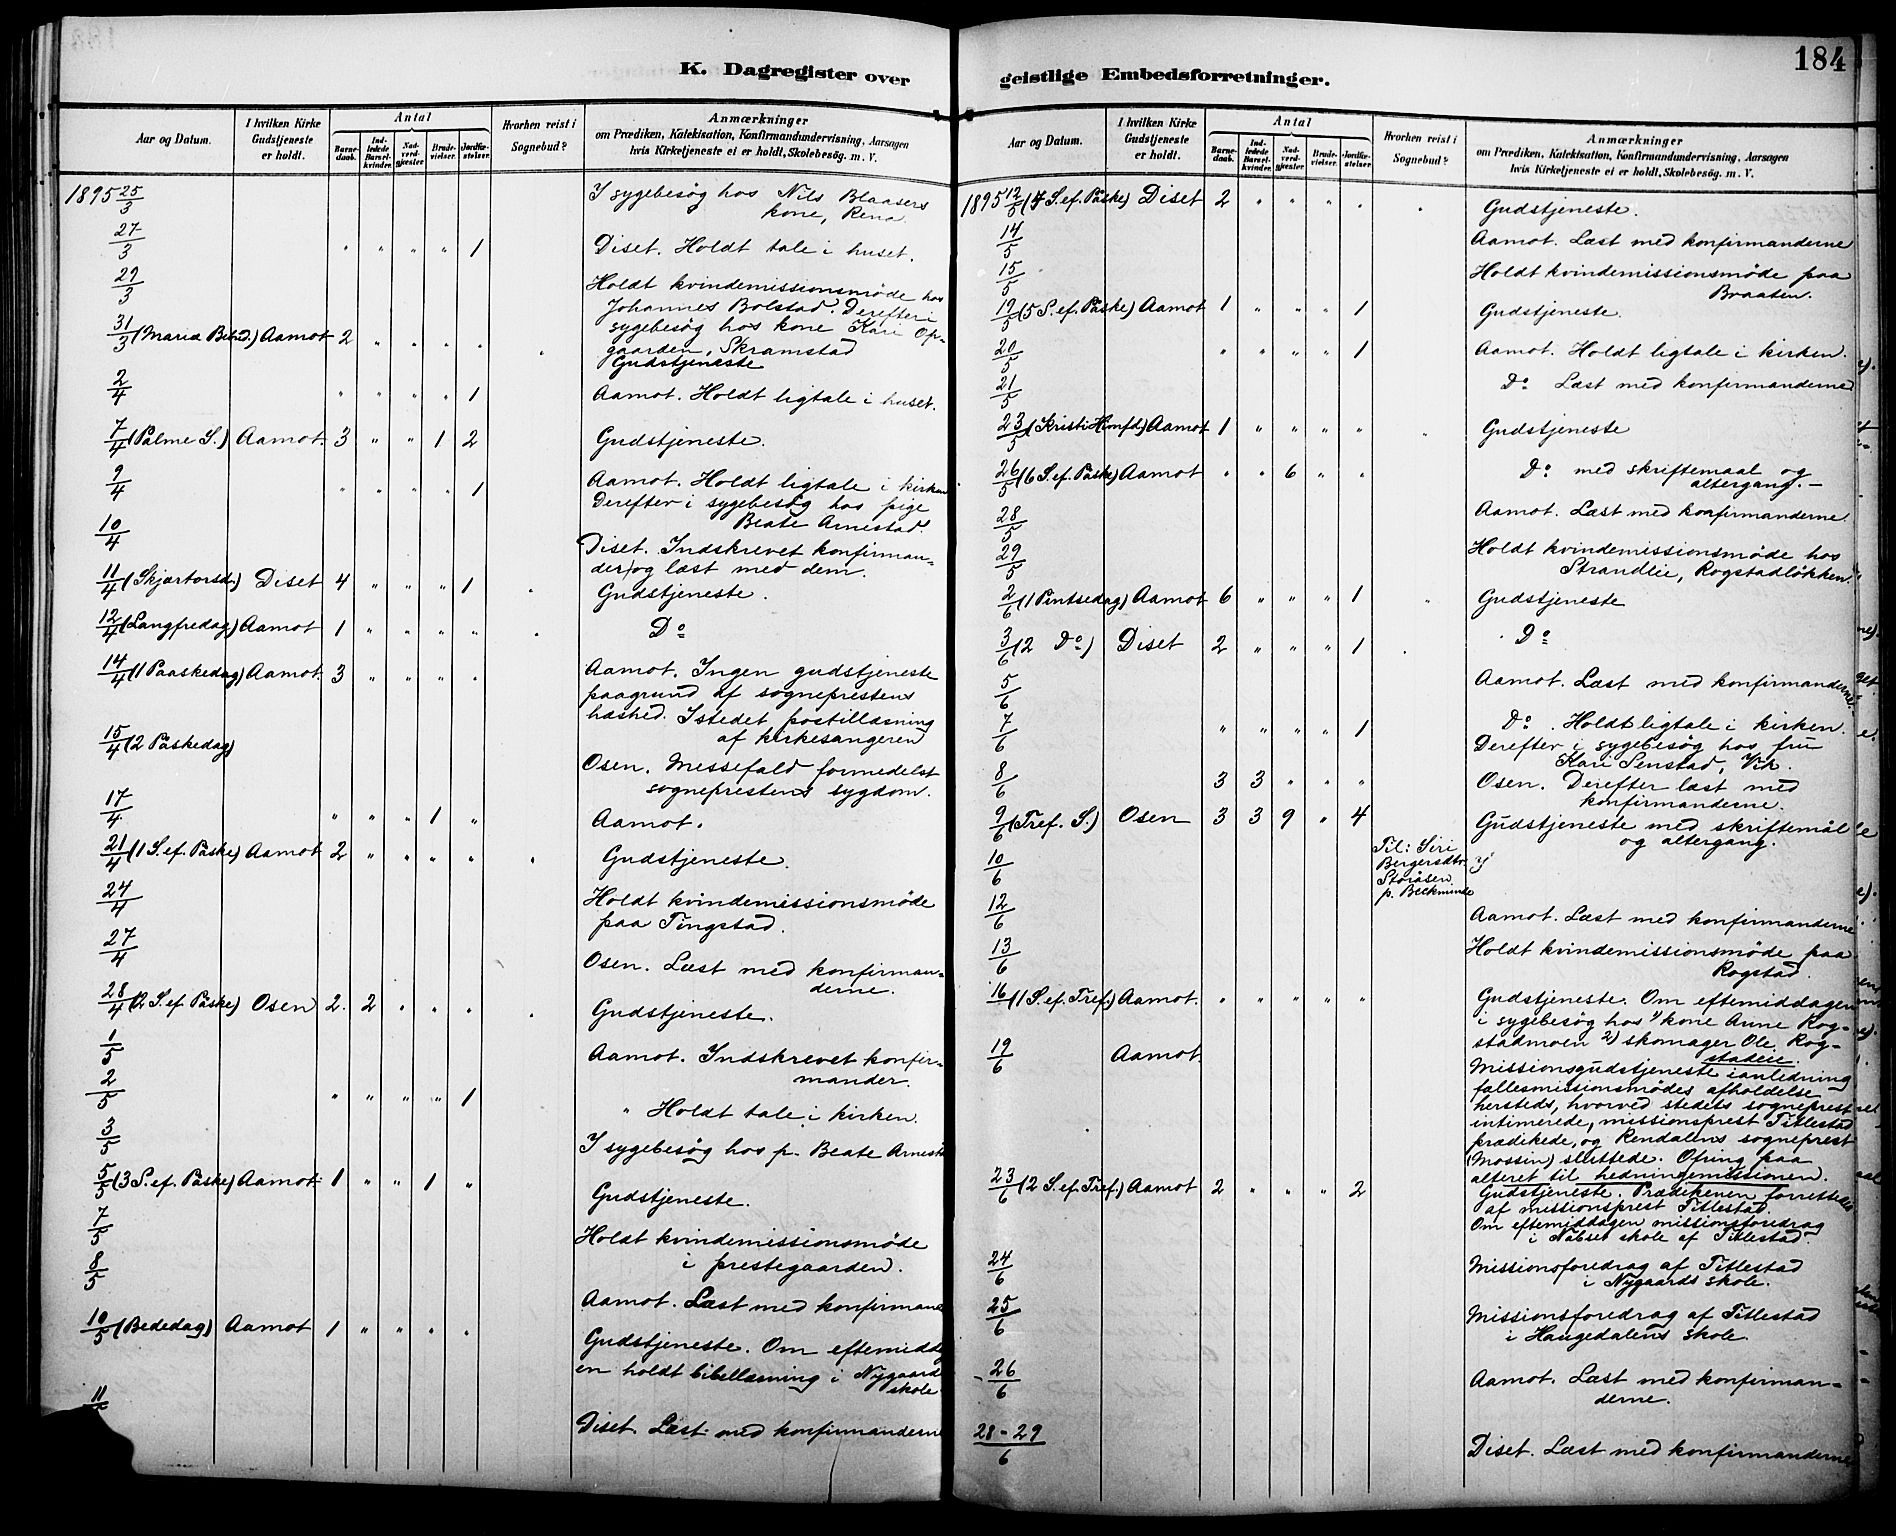 184
K. Dagregister over
Aar og Datum. I hvilken Kirke Gudstjeneste er holdt. Antal Barnedaab. Indledede Barselkvinder. Nadverdgjester Brudevielser. Jordfæstelser. Hvorhen reist i Sognebud? Anmærkninger om Prædiken, Katekisation, Konfirmandundervisning, Aarsagen hvis Kirketjeneste ei er holdt, Skolebesøg. m. V.
1895 25/3 I sygebesøg hos Nils Blaasers
kone, Rena
27/3 " " " " 1 Diset. Holdt tale i huset.
29/3 Holdt kvindemissionsmøde hos
Johannes Bolstad. Derefter i
sygebesøg hos kone Kari Op-
gaarden, Skramstad
31/3 (Mariæ Bebd.) Aamot 2 " " " " " Gudstjeneste
2/4 " " " " 1 Aamot. Holdt ligtale i huset.
7/4 (Palme S.) Aamot. 3 " " 1 2 Gudstjeneste.
9/4 " " " " 1 Aamot. Holdt ligtale i kirken
Derefter i sygebesøg hos pige
Beate Arnestad.
10/4 Diset. Indskrevet konfirman-
der og læst med dem.
11/4 (Skjærtorsd.) Diset 4 " " " 1 " Gudstjeneste.
12/4 (Langfredag) Aamot 1 " " " " " Do
14/4 (1 Paaskedag) Aamot. 3 " " " " Aamot. Ingen gudstjeneste
paagrund af sogneprestens
hæshed. Istedet postillæsning
af kirkesangeren
15/4 (2 Påskedag) Osen. Messefald formedelst
sogneprestens sygdom.
17/4 " " " 1 " Aamot.
21/4 (1 S. ef. Påske) Aamot 2 " " " " " Gudstjeneste.
24/4 Holdt kvindemissionsmøde
paa Tingstad.
27/4 Osen. Læst med konfirman-
derne.
28/4 (2 S. ef. Påske) Osen 2. 2 " " " " Gudstjeneste.
1/5 Aamot. Indskrevet konfir-
mander.
2/5 " " " " 1 " Holdt tale i kirken.
3/5 I sygebesøg hos p. Beate Arnest
5/5 (3 S. ef. Påske) Aamot. 1 " " 1 " Gudstjeneste.
7/5 Holdt kvindemissionsmøde
i prestegaarden.
8/5 Aamot. Læst med konfirman
10/5 (Bededag) Aamot 1 " " " " Gudstjeneste. Om eftermidda
en holdt bibellæsning i Nygaard
skole.
11 Diset. Læst med konfirmanderne
geistlige Embedsforretninger.
Aar og Datum. I hvilken Kirke Gudstjeneste er holdt. Antal Barnedaab. Indledede Barselkvinder. Nadverdgjester Brudevielser. Jordfæstelser. Hvorhen reist i Sognebud? Anmærkninger om Prædiken, Katekisation, Konfirmandundervisning, Aarsagen hvis Kirketjeneste ei er holdt, Skolebesøg. m. V.
1895 12/5 (4 S. ef. Påske) Diset 2 " " " " " Gudstjeneste.
14/5 Aamot. Læst med konfirmanderne
15/5 Holdt kvindemissionsmøde paa
Braaten.
19/5 (5 S. ef. Påske) Aamot 1 " " " 1 Gudstjeneste.
20/5 " " " " 1 Aamot. Holdt ligtale i kirken.
21/5 Do Læst med konfirmanderne
23/5 (Kristi Himfd.) Aamot 1 " " " " " Gudstjeneste
26/5 (6 S. ef. Påske) Aamot " " 6 " " Do med skriftemaal og
altergang. -
28/5 Aamot. Læst med konfirmanderne.
29/5 Holdt kvindemissionsmøde hos
Strandlie, Rogstadløkken.
2/6 (1 Pintsedag) Aamot 6 " " " 1 " Gudstjeneste
3/6 (2 Do) Diset 2 " " " 1 . Do
5/6 Aamot. Læst med konfirmanderne.
7/6 " " " " 1 Do. Holdt ligtale i kirken.
Derefter i sygebesøg hos fru
Kari Senstad, Vik.
8/6 3 3 " " " Osen. Derefter læst med
konfirmanderne.
9/6 (Tref. S.) Osen 3 3 9 " 4 Gudstjeneste med skriftemål
og altergang.
10/6 Til: Siri
Bergersdtr.
Storåsen
p. Bekminde
12/6 Aamot. Læst med konfirmanderne
13/6 Holdt kvindemissionsmøde paa
Rogstad.
16/6 (1 S. ef. Tref.) Aamot. " " " " " Gudstjeneste. Om eftemiddagen
i sygebesøg hos 1) kone Anne Rog-
stadmoen 2) skomager Ole Rog-
stadeie.
19/6 Aamot Missionsgudstjeneste ianledning
fællesmissionsmødes afholdelse
hersteds, hvorved stedets sogneprest
intimerede, missionsprest Titlestad
prædikede, og Rendalens sogneprest
(Mossin) sluttede. Ofring paa
alteret til hedningemissionen.
23/6 (2 S. ef. Tref.) Aamot 2 " " " 2 Gudstjeneste. Prædikenen forrettedes
af missionsprest Titlestad.
Om eftemiddagen missionsforedrag
i Nabset skole af Titlestad.
24/6 Missionsforedrag af Titlestad
i Nygaards skole.
25/6 Missionsforedrag af Titlestad
i Haugedalens skole.
26/6 Aamot. Læst med konfirman-
derne.
28-29/6 Diset. Læst med konfirmanderne